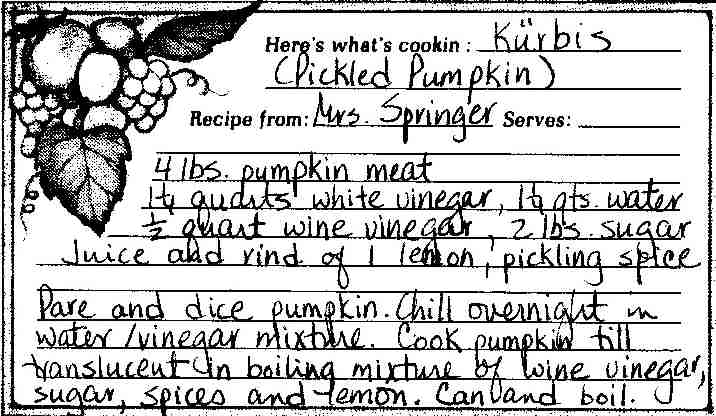 Here's what's cookin: Kürbis
(Pickled Pumpkin)
Recipe from: Mrs. Springer Serves:
4 lbs. pumpkin meat
1¼ quarts white vinegar, 1¼ qts. water
½ quart wine vinegar, 2 lbs. sugar
Juice and rind of 1 lemon, pickling spice
Pare and dice pumpkin. Chill overnight in
water/vinegar mixture. Cook pumpkin till
translucent in boiling mixture of wine vinegar,
sugar, spices and lemon. Can and boil.